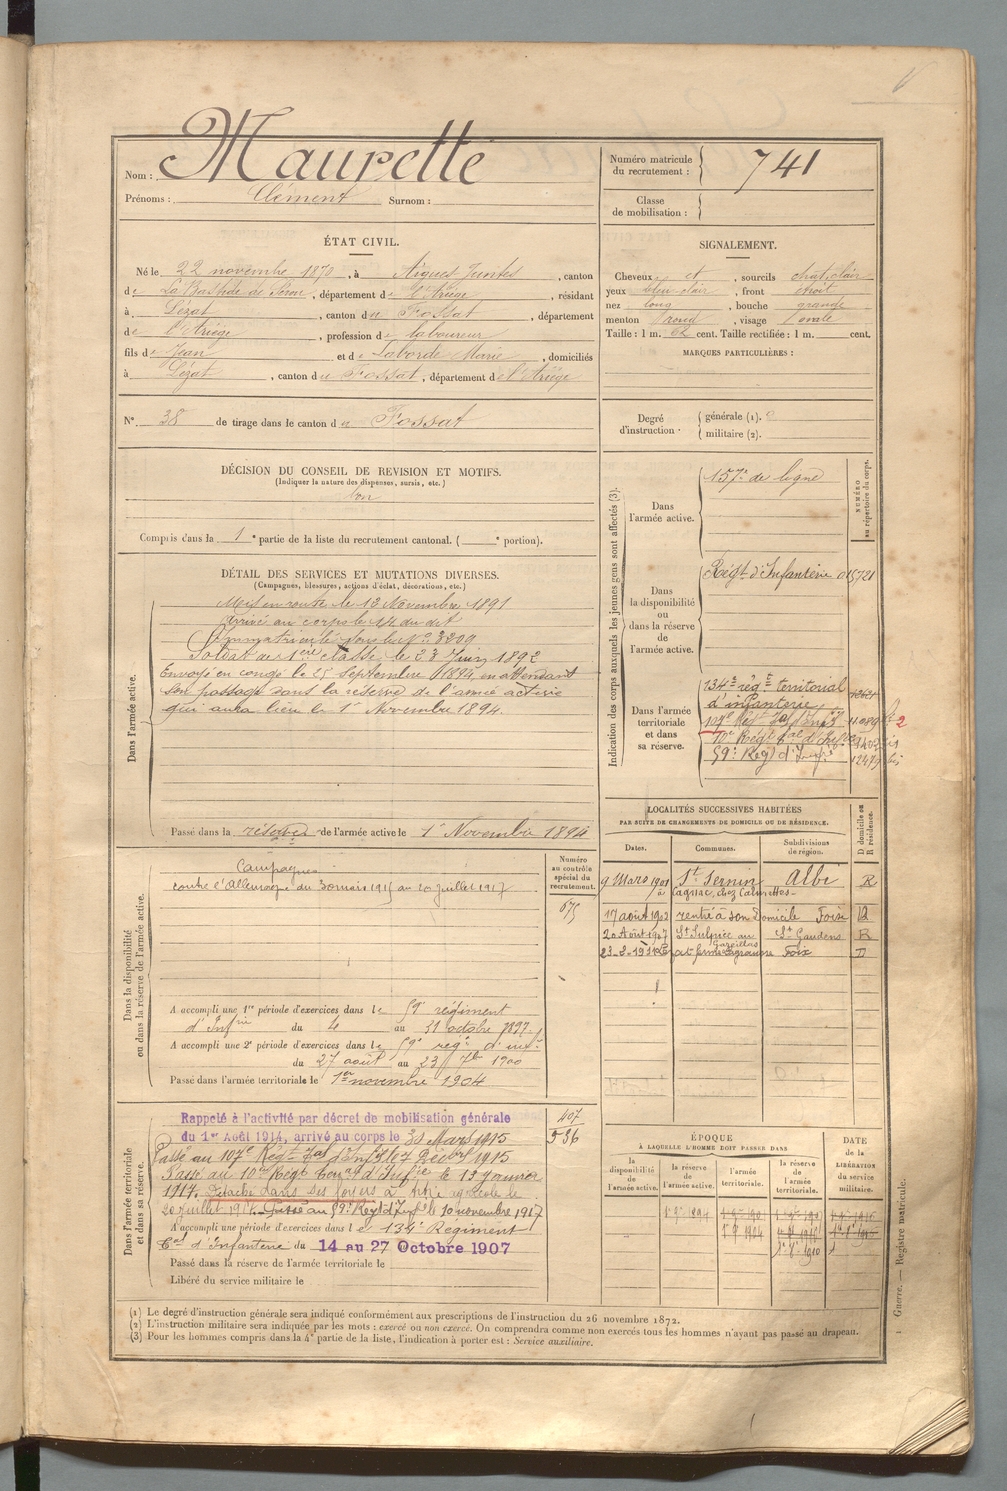 Nom : Maurette
Prénoms : Clément Surnom :
Numéro matricule du recrutement : 741
Classe de mobilisation :
ÉTAT CIVIL.
Né le 22 novembre 1870, à Aigues Juntes, canton
de La Bastide de Sérou, département de l'Ariège, résidant
à Lézat, canton du Fossat, département
de l'Ariège, profession de laboureur
fils de Jean et de Laborde Marie, domiciliés
à Lézat, canton du Fossat, département de l'Ariège
N° 38 de tirage dans le canton du Fossat
SIGNALEMENT.
Cheveux et, sourcils chat. clair
yeux bleu clair, front étroit
nez long, bouche grande
menton rond, visage ovale
Taille : 1 m. 62 cent. Taille rectifiée : 1 m. cent.
MARQUES PARTICULIÈRES :
Degré d'instruction. générale (1).
militaire (2).
DÉCISION DU CONSEIL DE REVISION ET MOTIFS.
(Indiquer la nature des dispenses, sursis, etc.)
bon
Compris dans la 1e partie de la liste du recrutement cantonal. ( e portion).
DÉTAIL DES SERVICES ET MUTATIONS DIVERSES.
(Campagnes, blessures, actions d'éclat, décorations, etc.)
Dans l'armée active.
Mis en route le 13 Novembre 1891
arrivé au corps le 14 du dit
Immatriculé sous le N° 3209
Soldat de 1ère classe le 23 Juin 1892
Envoyé en congé le 25 Septembre 1894 en attendant
son passage dans la réserve de l'armée active
qui aura lieu le 1er Novembre 1894.
Passé dans la réserve de l'armée active le 1er Novembre 1894
Indication des corps auxquels les jeunes gens sont affectés (3).
NUMÉRO au répertoire du corps.
Dans l'armée active.
157e de ligne
Dans la disponibilité ou dans la réserve de l'armée active.
Régt d'Infanterie 015721
Dans l'armée territoriale et dans sa réserve.
134e rég.t territorial
d'infanterie
107e Régt
59e Régt d'Infie
LOCALITÉS SUCCESSIVES HABITÉES
PAR SUITE DE CHANGEMENTS DE DOMICILE OU DE RÉSIDENCE.
Dates. Communes. Subdivisions de région. D domicile ou R résidence.
9 Mars 1901 St Sernin Albi R
17 août 1902 rentré à son Domicile Foix D
20 Août 1907 St Sulpice St Gaudens R
Foix D
Dans la disponibilité ou dans la réserve de l'armée active.
Numéro au contrôle spécial du recrutement.
675
Campagnes
contre l'Allemagne du 30 mars 1915 au 20 juillet 1917
A accompli une 1re période d'exercices dans le 59e régiment
d'Infrie du 4 au 31 octobre 1897
A accompli une 2e période d'exercices dans le 59e régt d'inf.
du 27 août au 23 7bre 1900
Passé dans l'armée territoriale le 1er novembre 1904
Dans l'armée territoriale et dans sa réserve.
407
536
Rappelé à l'activité par décret de mobilisation générale
du 1er Août 1914, arrivé au corps le 30 Mars 1915
Passé au 107e Régt d'Inf le 7 Décbre 1915
Passé au 10e Régt d'Infie le 13 Janvier
1917. Détaché dans ses foyers à titre agricole le
20 juillet 1917. Passé au 59e Régt d'Inf le 10 novembre 1917
A accompli une période d'exercices dans le 134e Régiment
d'Infanterie du 14 au 27 Octobre 1907
Passé dans la réserve de l'armée territoriale le
Libéré du service militaire le
ÉPOQUE
À LAQUELLE L'HOMME DOIT PASSER DANS
la disponibilité de l'armée active. la réserve de l'armée active. l'armée territoriale. la réserve de l'armée territoriale.
DATE de la LIBÉRATION du service militaire.
(1) Le degré d'instruction générale sera indiqué conformément aux prescriptions de l'instruction du 26 novembre 1872.
(2) L'instruction militaire sera indiquée par les mots : exercé ou non exercé. On comprendra comme non exercés tous les hommes n'ayant pas passé au drapeau.
(3) Pour les hommes compris dans la 4e partie de la liste, l'indication à porter est : Service auxiliaire.
Guerre. — Registre matricule.